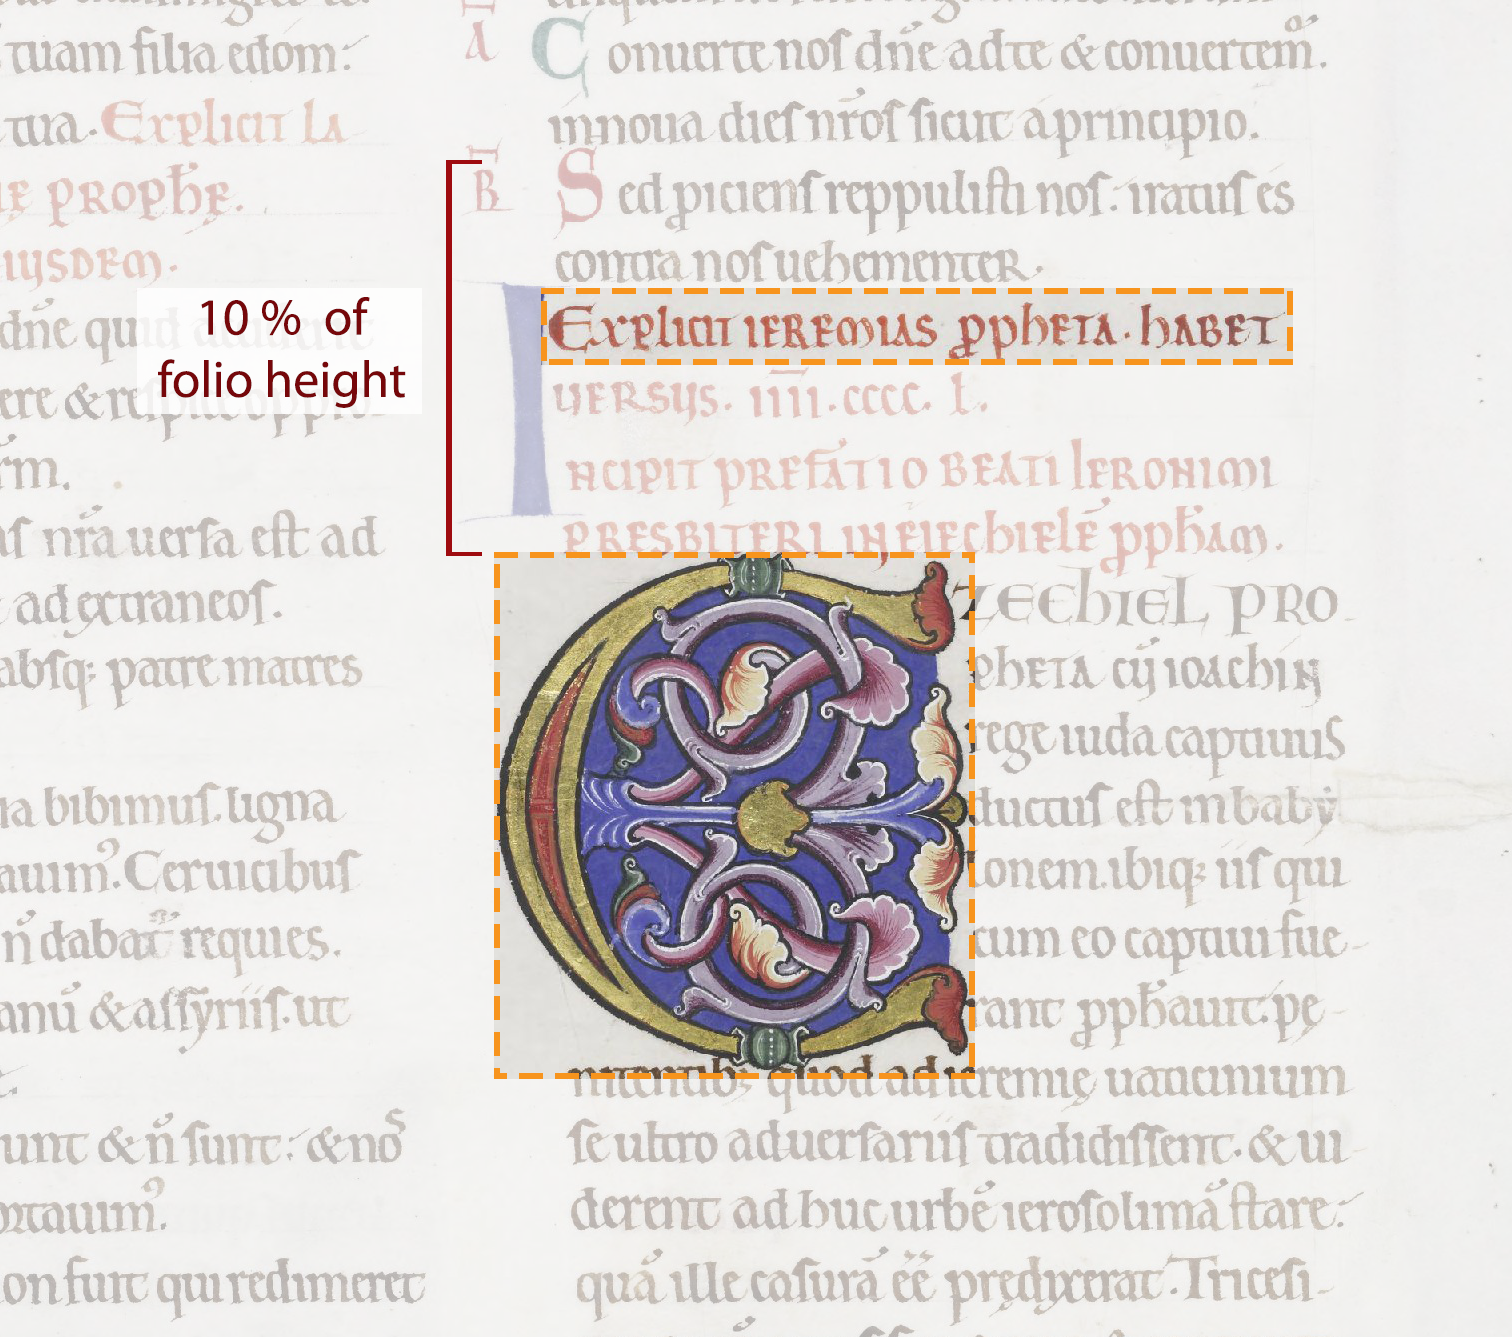 tuam filia edom:
tua. Explicit la
prophę.
iusdem.
dñe quid
ere &
rm.
as nr̄a uersa est ad
ad extraneos.
absq; patre matres
na bibimus. ligna
auim᾽. Ceruicibus
n̄ dabat̄ requies.
anū & assyriis. ut
unt & n̄ sunt: & nos
ortauim᾽.
on fuit qui redimeret
10 % of
folio height
A
C onuerte nos dñe ad te & conuertem᾽.
innoua dies nr̄os sicut a principio.
B
S ed ꝓiciens reppulisti nos: iratus es
contra nos uehementer.
Explicit ieremias ꝓpheta. habet
uersus. iiii. cccc. l.
I ncipit prefatio beati ieronimi
presbiteri in eiechielē ꝓph̄am.
EZEchIEL PRO-
pheta cū ioachin
rege iuda captiuus
ductus est in baby
lonem. ibiq; iis qui
cum eo captiui fue-
rant ꝓph̄auit. pę-
nitentib; quod ad ieremię uaticinium
se ultro aduersariis tradidissent. & ui-
derent ad huc urbē ierosolimā stare:
quā ille casurā eē̄ prędixerat. Tricesi-